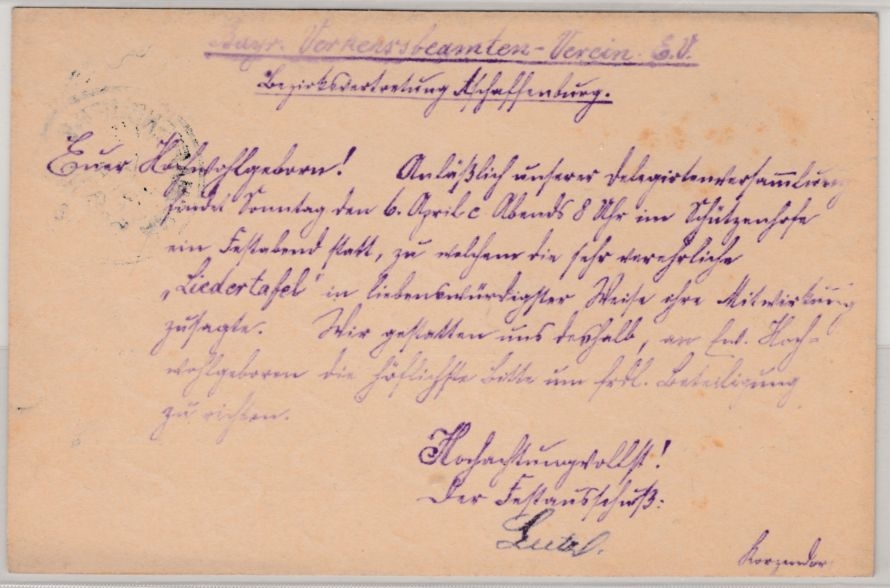 Bayr. Verkehrsbeamten-Verein E.V.
Bezirksvertretung Aschaffenburg.
Euer Hochwohlgeborn! Anläßlich unserer Delegirtenversammlung
findet Sonntag den 6. April c Abends 8 Uhr im Schützenhofe
ein Festabend statt, zu welchem die sehr verehrliche
„Liedertafel" in liebenswürdigster Weise ihre Mitwirkung
zusagte. Wir gestatten uns deshalb, an Ew. Hoch-
wohlgeboren die höflichste Bitte um frdl. Beteiligung
zu richten.
Hochachtungsvollst!
Der Festausschuß: